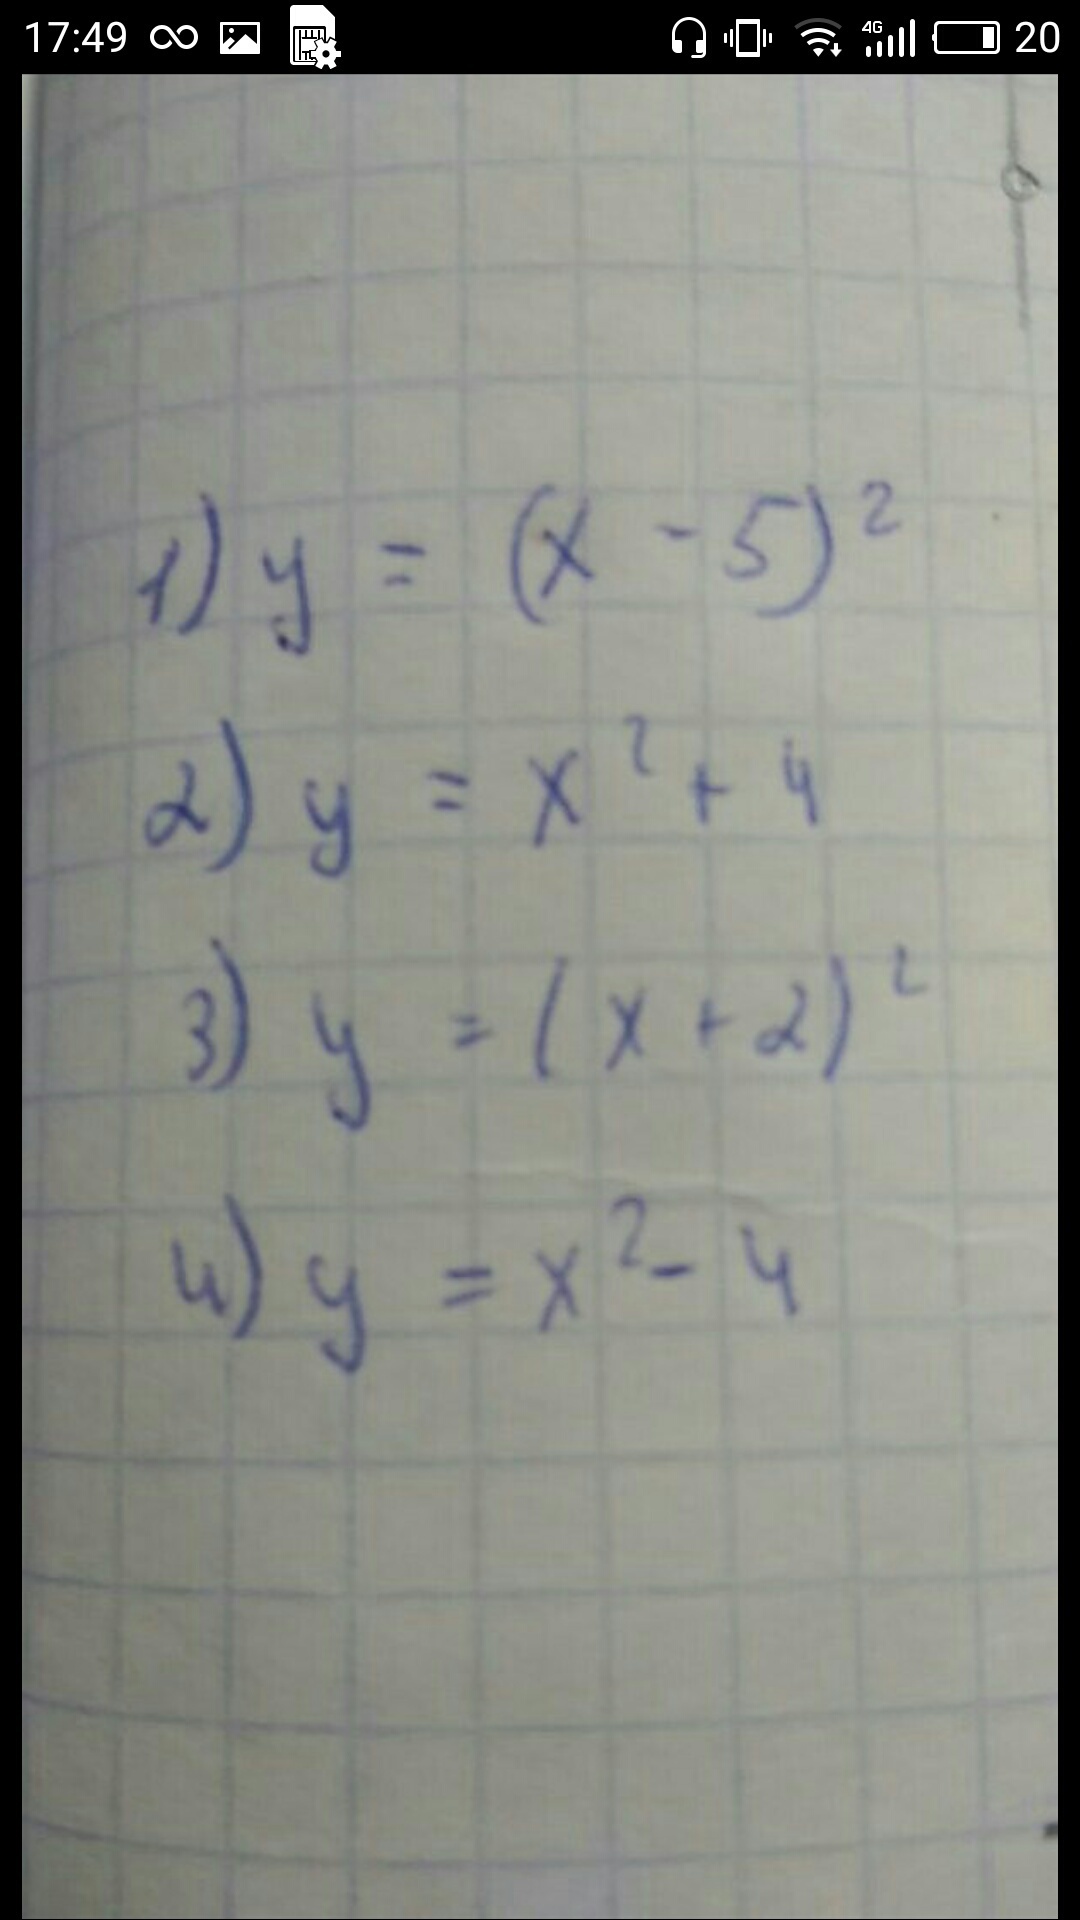 17:49 4G 20
1) y = (x - 5)²
2) y = x² + 4
3) y = (x + 2)²
4) y = x² - 4